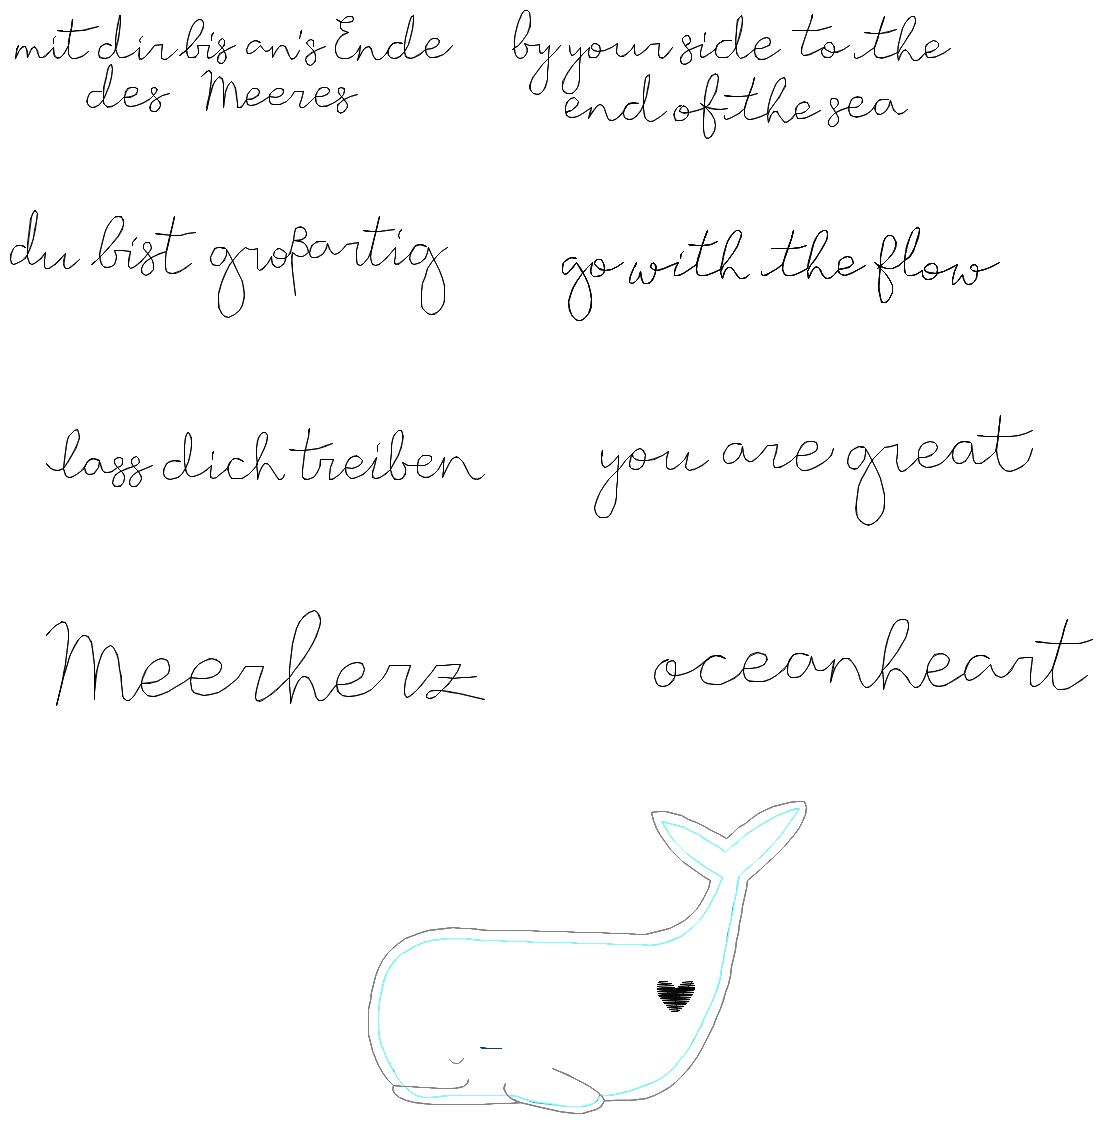 mit dir bis an's Ende
des Meeres
by your side to the
end of the sea
du bist großartig
go with the flow
lass dich treiben
you are great
Meerherz
oceanheart